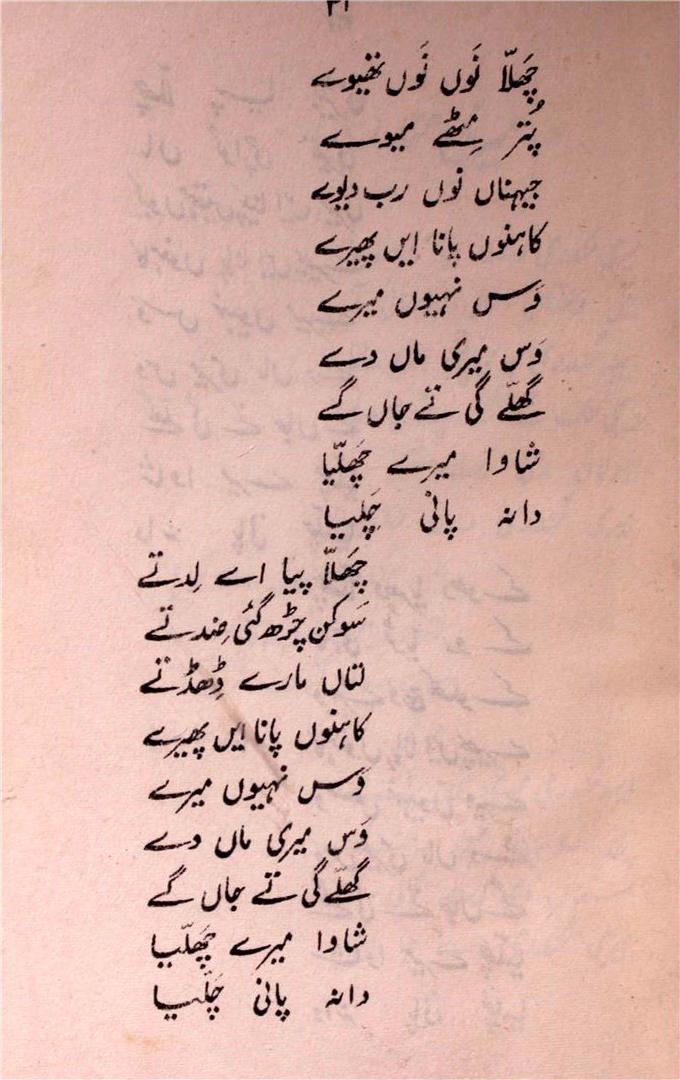 ۳۱
چَھلّا نَوں نَوں تھیوے
پُتر مِٹھّے میوے
جیہناں نوں رب دیوے
کاہنوں پانا ایں پھیرے
وَس نہیوں میرے
وَس میری ماں دے
گَھلّے گی تے جاں گے
شاوا میرے چَھلّیا
دانہ پانی چَلیا
چَھلاّ پیا اے لِدتے
سَوکن چڑھ گئی ضِد تے
لتاں مارے ڈِھڈ تے
کاہنوں پانا ایں پھیرے
وَس نہیوں میرے
وَس میری ماں دے
گَھلّے گی تے جاں گے
شاوا میرے چَھلّیا
دانہ پانی چَلّیا